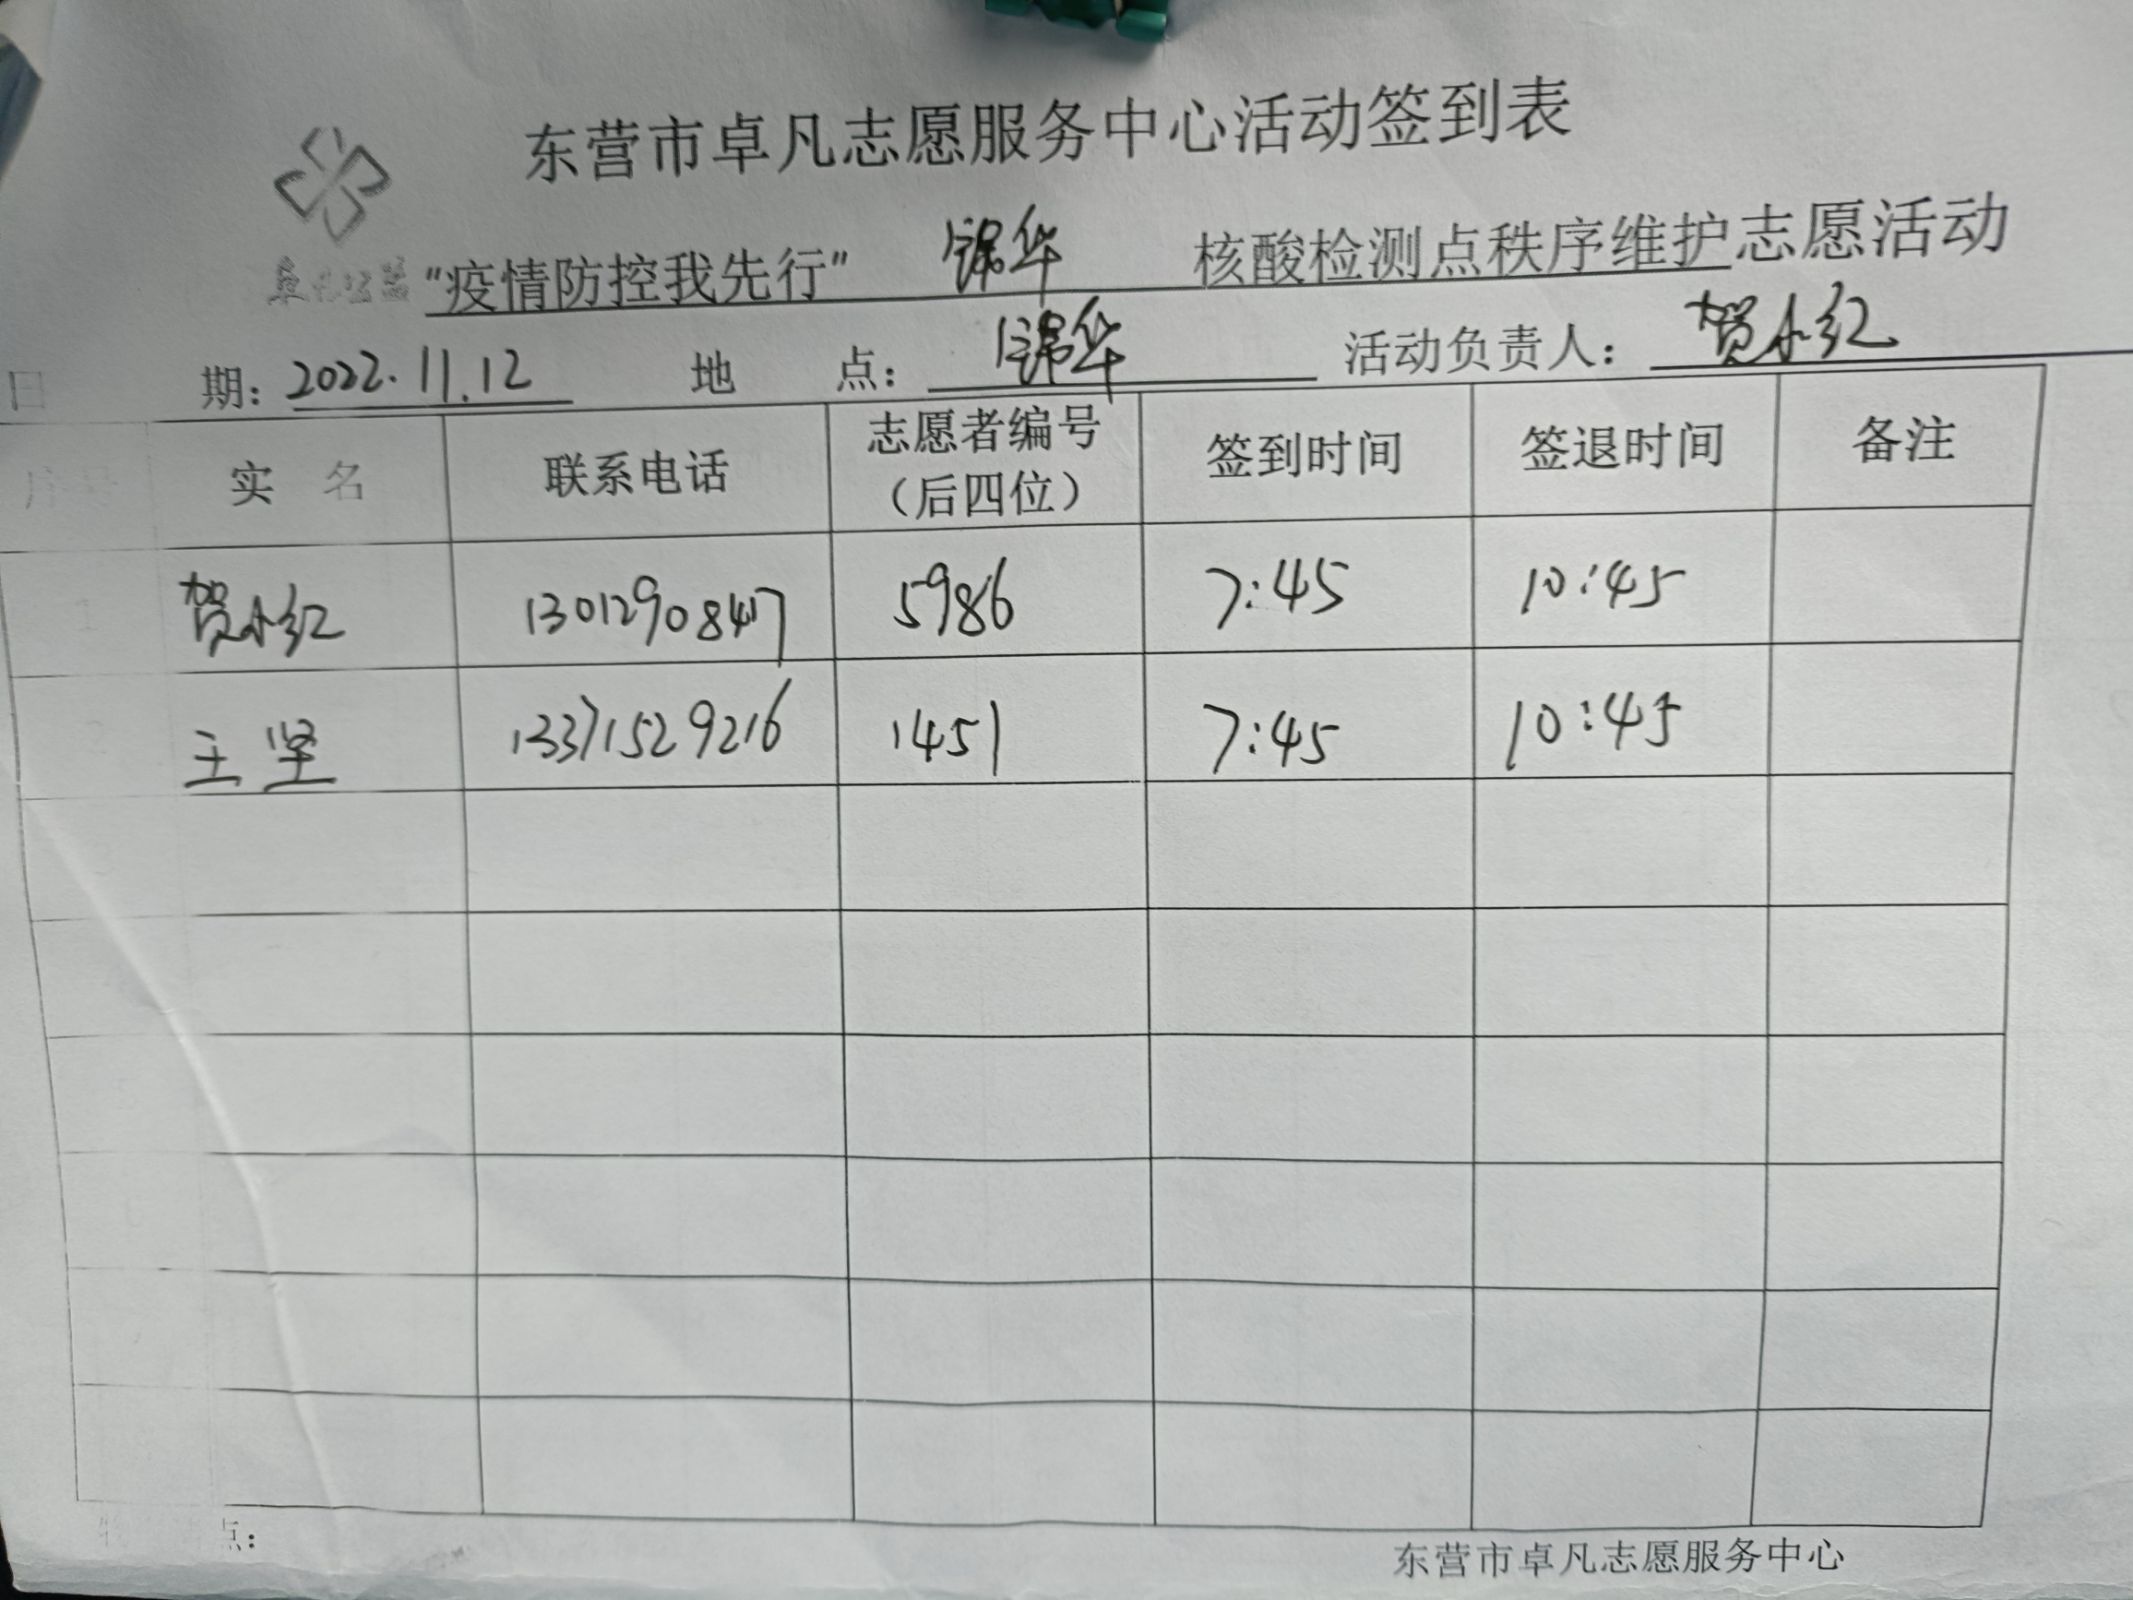 东营市卓凡志愿服务中心活动签到表
卓凡公益
"疫情防控我先行" 锦华 核酸检测点秩序维护志愿活动
日 期: 2022.11.12 地 点: 锦华 活动负责人: 贺小红
序号 实 名 联系电话 志愿者编号（后四位） 签到时间 签退时间 备注
1 贺小红 13012908447 5986 7:45 10:45
2 王坚 13371529216 1451 7:45 10:45
点:
东营市卓凡志愿服务中心